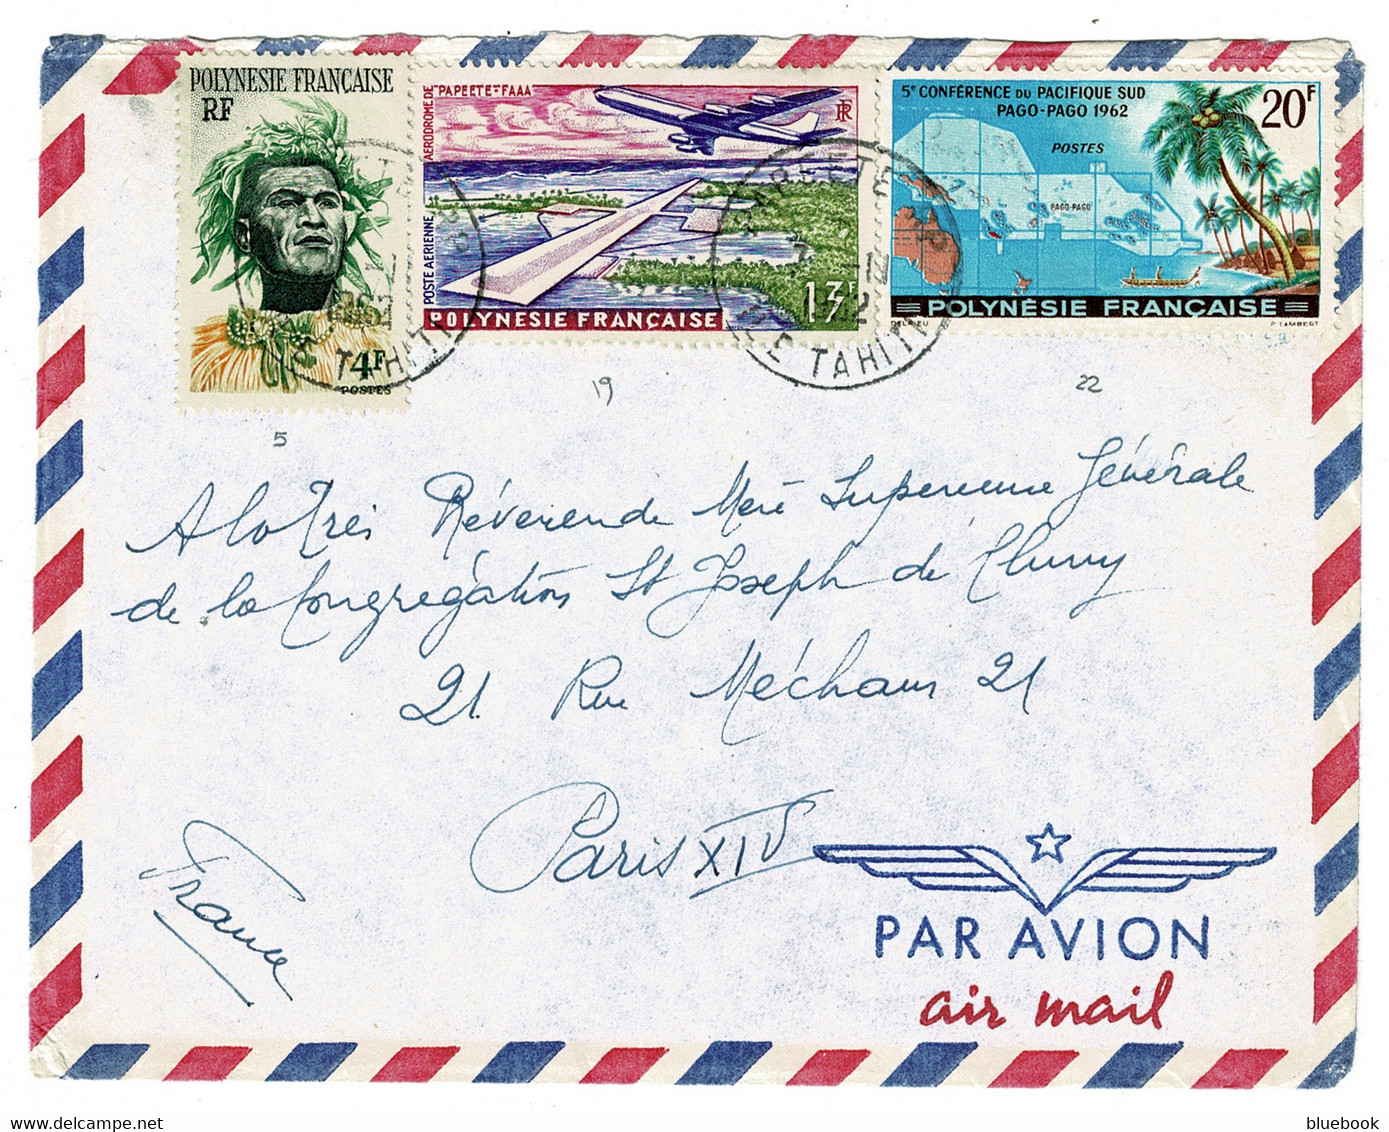 POLYNESIE FRANÇAISE
RF
4F
POSTES
AÉRODROME DE PAPEETE-FAAA
POSTE AÉRIENNE
RF
13F
POLYNESIE FRANÇAISE
5e CONFÉRENCE DU PACIFIQUE SUD
PAGO-PAGO 1962
20F
POSTES
PAGO-PAGO
POLYNÉSIE FRANÇAISE
DELRIEU
P. LAMBERT
PAPEETE
ILE TAHITI
ILE TAHITI
5
19
22
A la Très Révérende Mère Supérieure Générale
de la Congrégation St Joseph de Cluny
21 Rue Méchain 21
Paris XIV
France
PAR AVION
air mail
bluebook